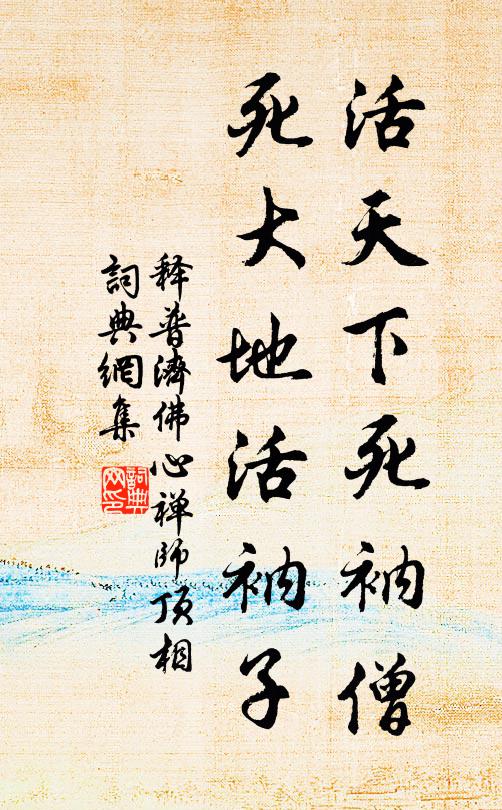 活天下死衲僧
死大地活衲子
释普濟佛心禅师顶相
詞典網集
詞典
网印